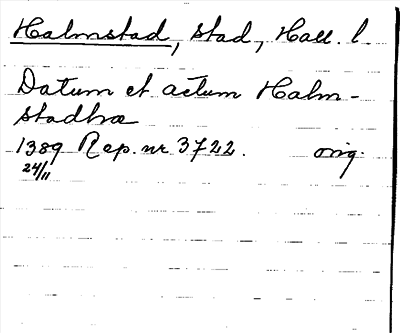 Halmstad, stad, Hall. l.
Datum et actum Halm-
stadhæ
1389 Rep. nr 3722. orig.
24/11